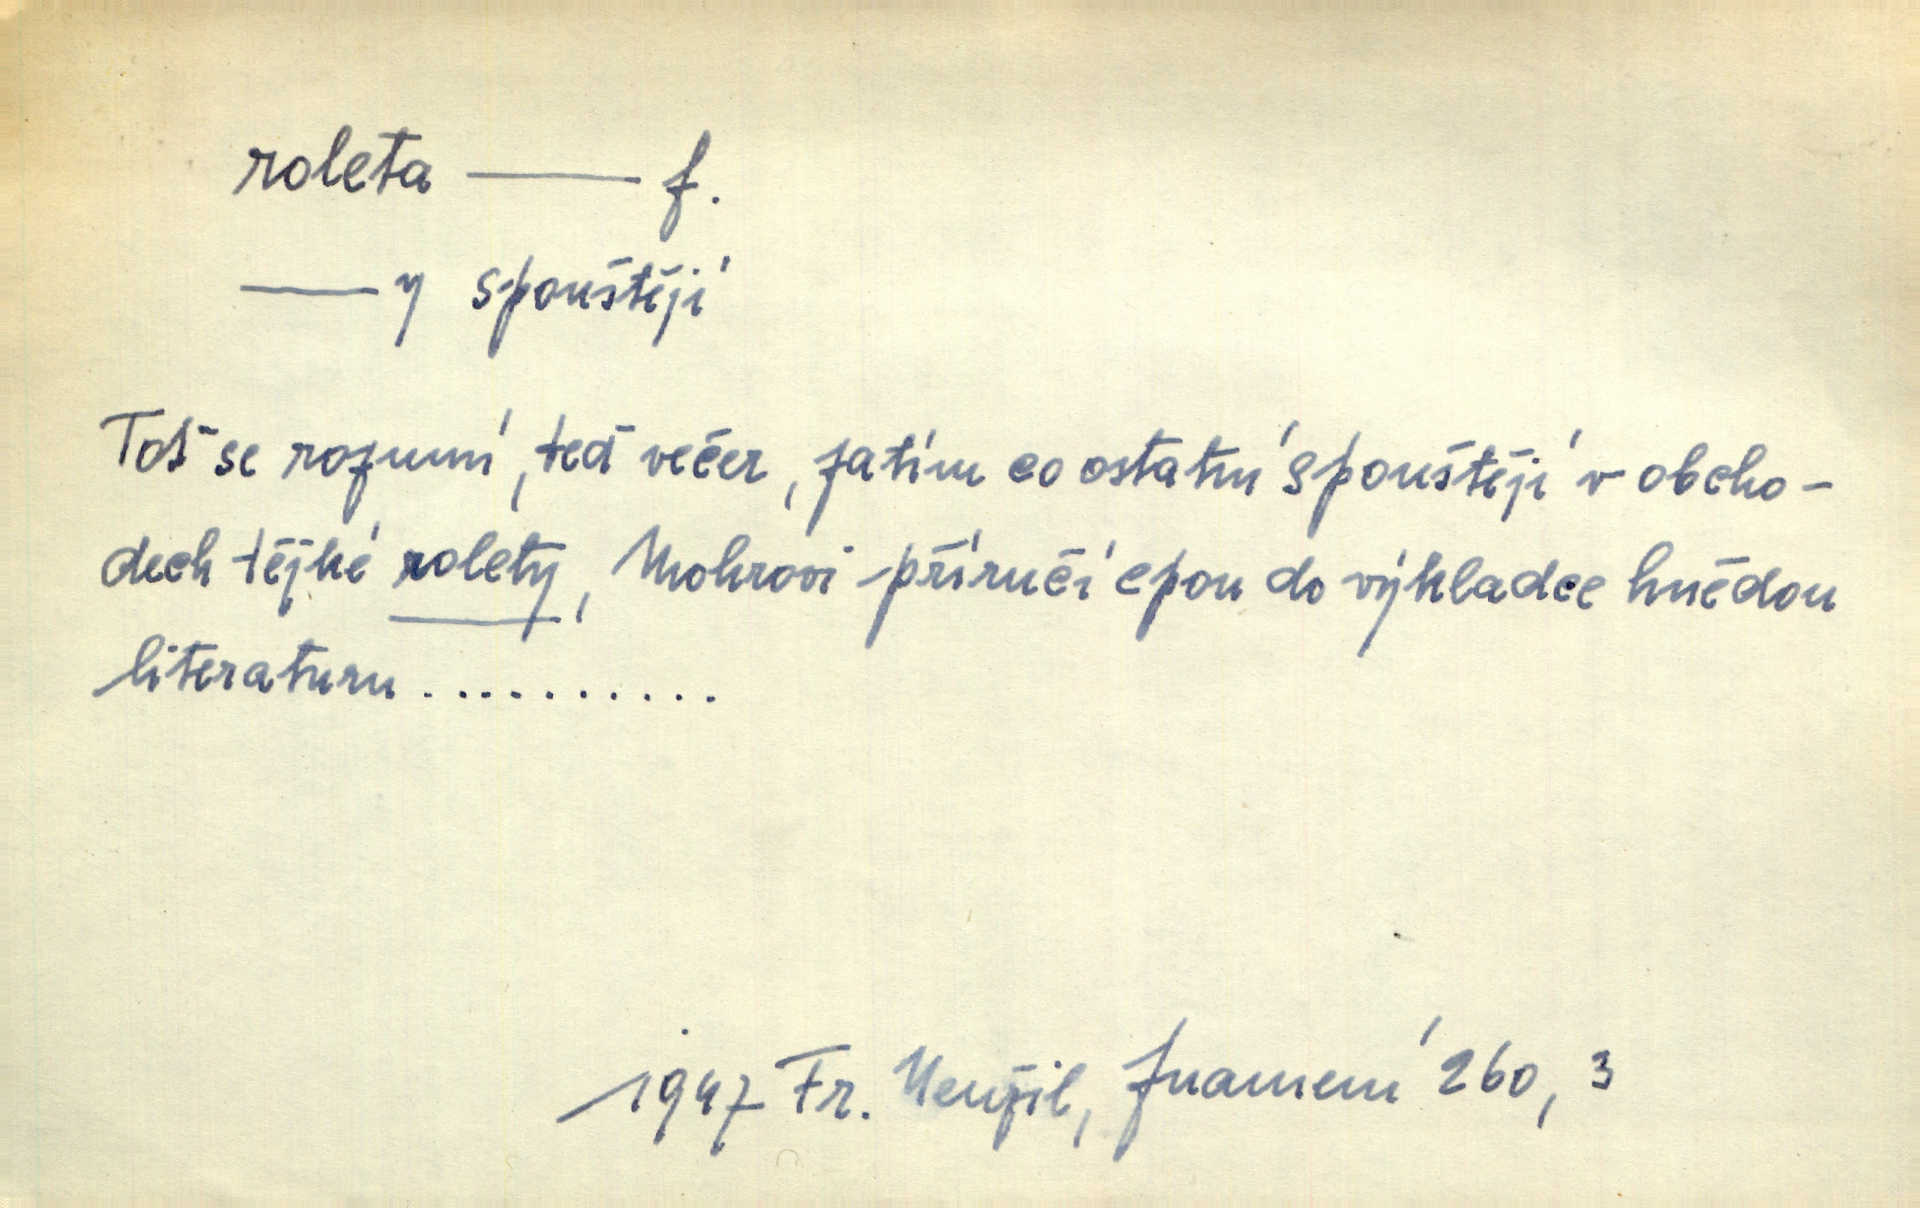 roleta —— f.
—— y spouštějí
Toť se rozumí, teď večer, zatím co ostatní spouštějí v obcho-
dech těžké rolety, Mohrovi příručí cpou do výkladce hnědou
literaturu ...........
1947 Fr. Neužil, Znamení 260, 3